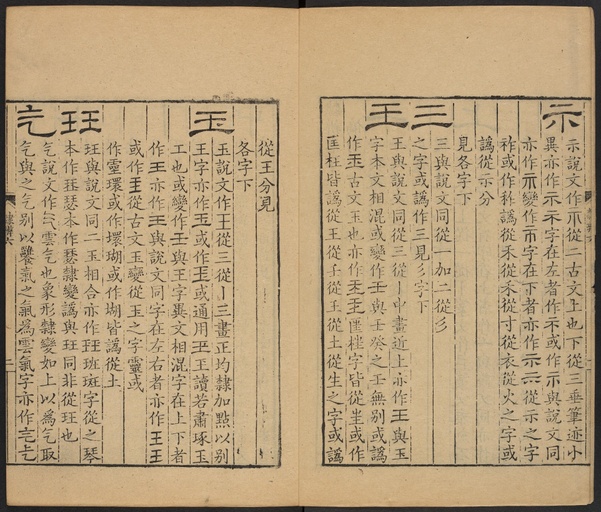 示
示說文作從二古文上也下從三垂筆迹小
異亦作示字在左者作示或作示與說文同
亦作變作字在下者亦作示從示之字
祚或作秨譌從禾從禾從寸從衣從火之字或
譌從示分
見各字下
三
三與說文同從一加二從彡
之字或譌作三見彡字下
王
王與說文同從三從丨中畫近上亦作王與玉
字本文相混或變作壬與壬癸之壬無別或譌
作古文玉也亦作匡枉字皆從㞷或作
匡枉皆譌從王從壬從王從土從生之字或譌
隸辨六
二
從王分見
各字下
玉
玉說文作王從三從丨三畫正均隸加點以別
王字亦作玉或作玉或通用玊玊讀若肅琢玉
工也或變作與王字異文相混字在上下者
作王亦作王與說文同字在左右者亦作王王
或作從古文玉變從玉之字靈或
作靈環或作壞瑚或作堋皆譌從土
珏
珏與說文同二玉相合亦作玨班斑字從之琴
本作珡瑟本作隸變譌與珏同非從珏也
气
气說文作气雲气也象形隸變如上以為气取
气與之气別以饔氣之氣為雲氣字亦作乞